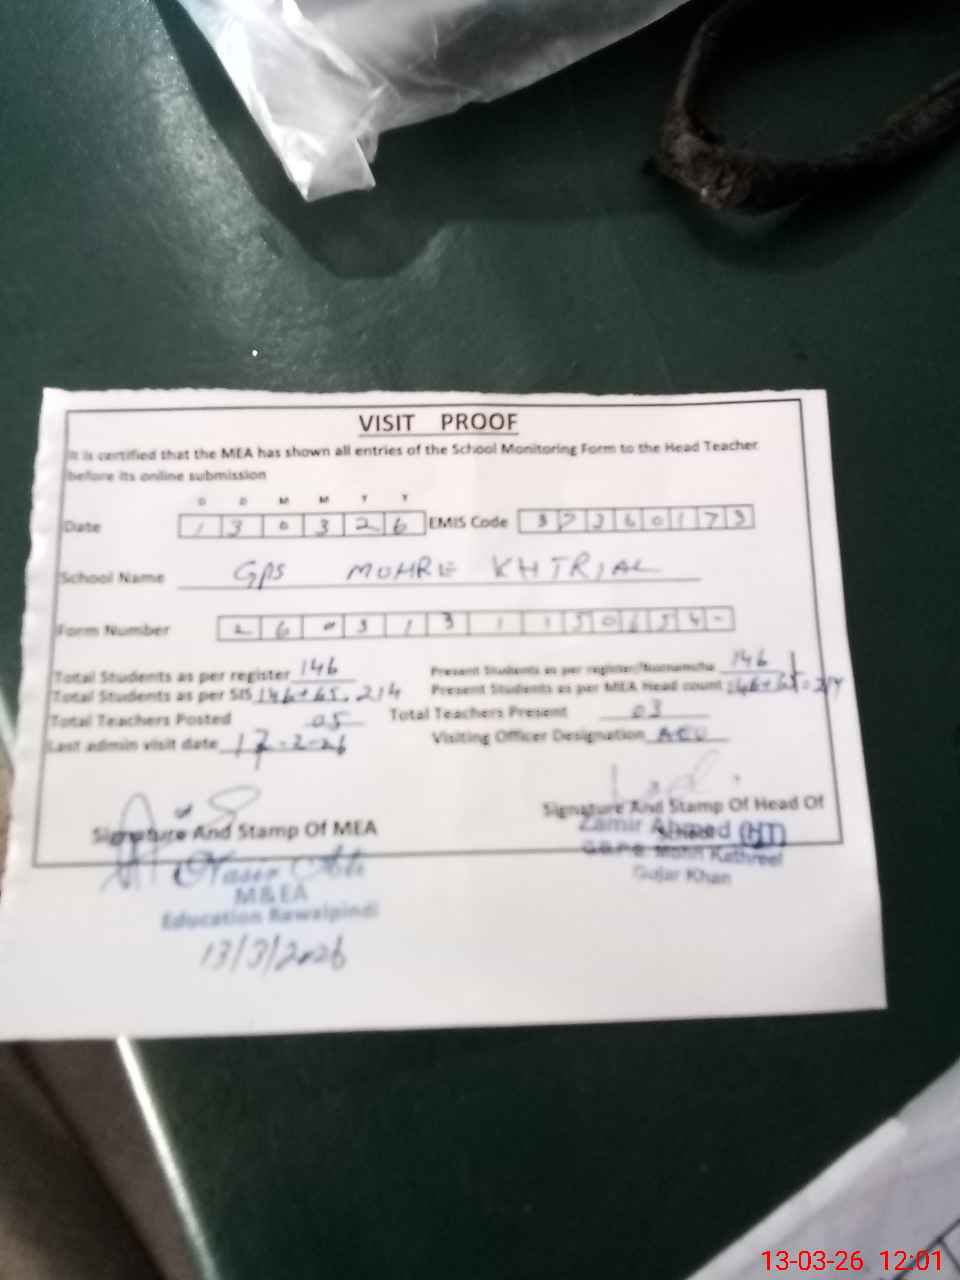 VISIT PROOF
It is certified that the MEA has shown all entries of the School Monitoring Form to the Head Teacher
before its online submission
D D M M Y Y
Date 1 3 0 3 2 6 EMIS Code 3 7 2 6 0 1 7 3
School Name GPS MOHRE KHTRIAL
Form Number 2 6 0 3 1 3 1 1 5 0 6 5 4 -
Total Students as per register 146 Present Students as per register/ 146
Total Students as per SIS 146+65. 214 Present Students as per MEA Head count 146+65=214
Total Teachers Posted 05 Total Teachers Present 03
Last admin visit date 17-2-26 Visiting Officer Designation AEO
Signature And Stamp Of MEA Signature And Stamp Of Head Of
Zamir Ahmed (HT)
Nasir Ali G.B.P.S. Mohri Kathreel
M&EA Gujar Khan
Education Rawalpindi
13/3/2026
13-03-26 12:01